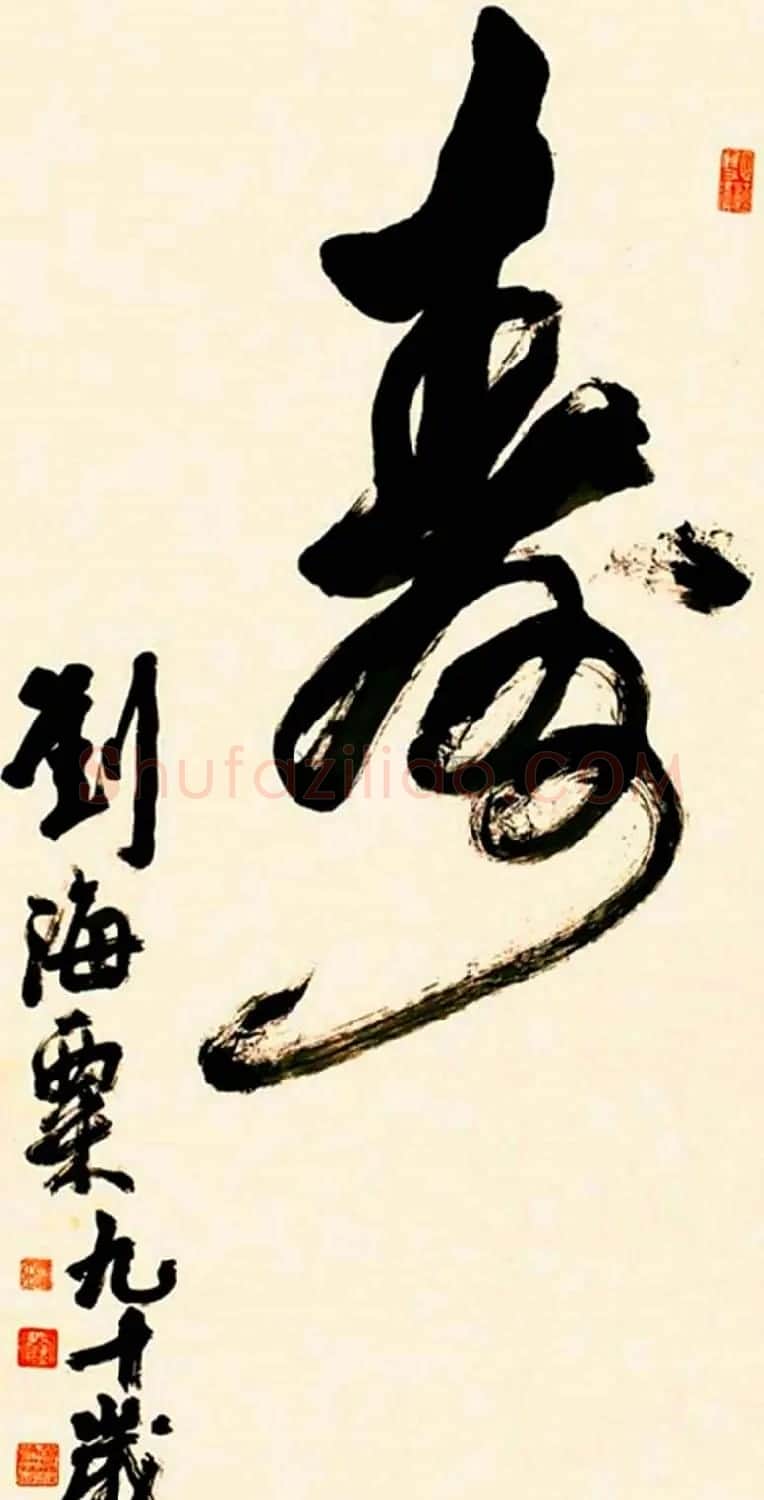 壽
劉海粟九十歲
Shufaziliao.COM